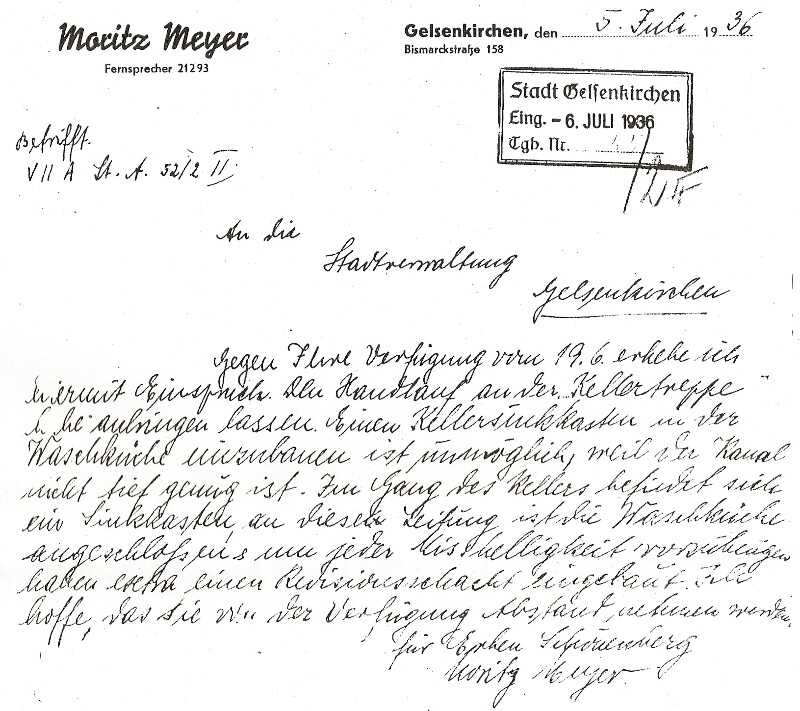 Moritz Meyer
Fernsprecher 21293
Gelsenkirchen, den 5. Juli 1936
Bismarckstraße 158
Stadt Gelsenkirchen
Eing. - 6. JULI 1936
Tgb. Nr.
Betrifft.
VII A St. A. 52/2 II
An die
Stadtverwaltung
Gelsenkirchen
Gegen Ihre Verfügung vom 19.6. erhebe ich
hiermit Einspruch. Den Handlauf an der Kellertreppe
anbringen lassen. Einen Kellersinkkasten in der
Waschküche einzubauen ist unmöglich, weil der Kanal
nicht tief genug ist. Im Gang des Kellers befindet sich
ein Sinkkasten, an dieser Leitung ist die Waschküche
angeschloßen & um jeder Misshelligkeit vorzubeugen
haben extra einen Revisionsschacht eingebaut. Ich
hoffe, das sie von der Verfügung Abstand nehmen werden.
für Erben Schönenberg
Moritz Meyer.